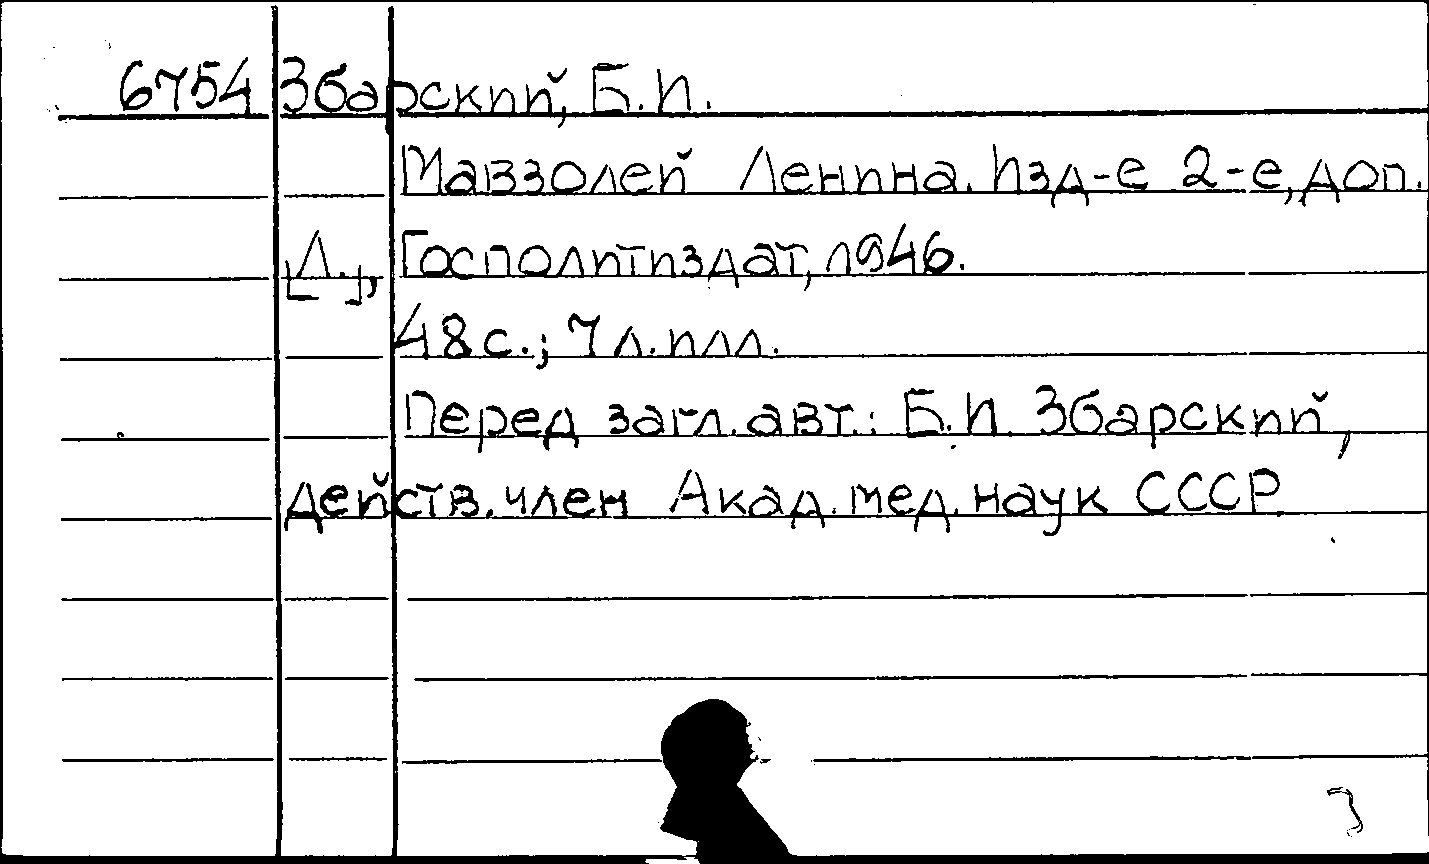 6754 Збарский, Б.И.
Мавзолей Ленина. Изд-е 2-е, доп.
[Л.], Госполитиздат, 1946.
48 с.; 7 л. илл.
Перед загл. авт.: Б.И. Збарский,
действ. член Акад. мед. наук СССР.